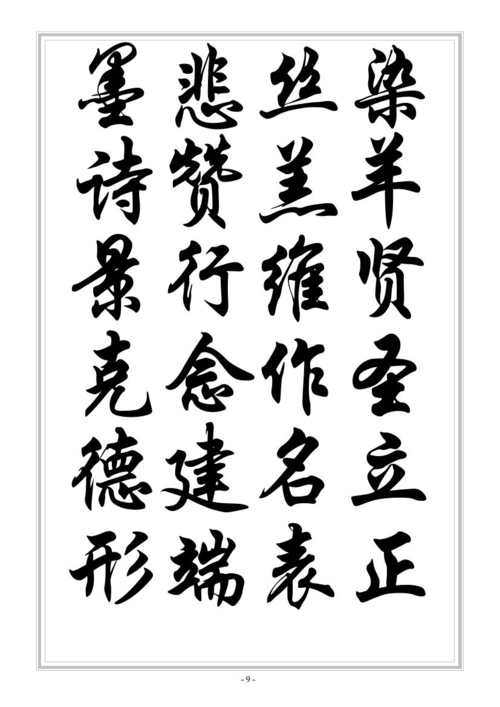 墨悲丝染
诗赞羔羊
景行维贤
克念作圣
德建名立
形端表正
- 9 -